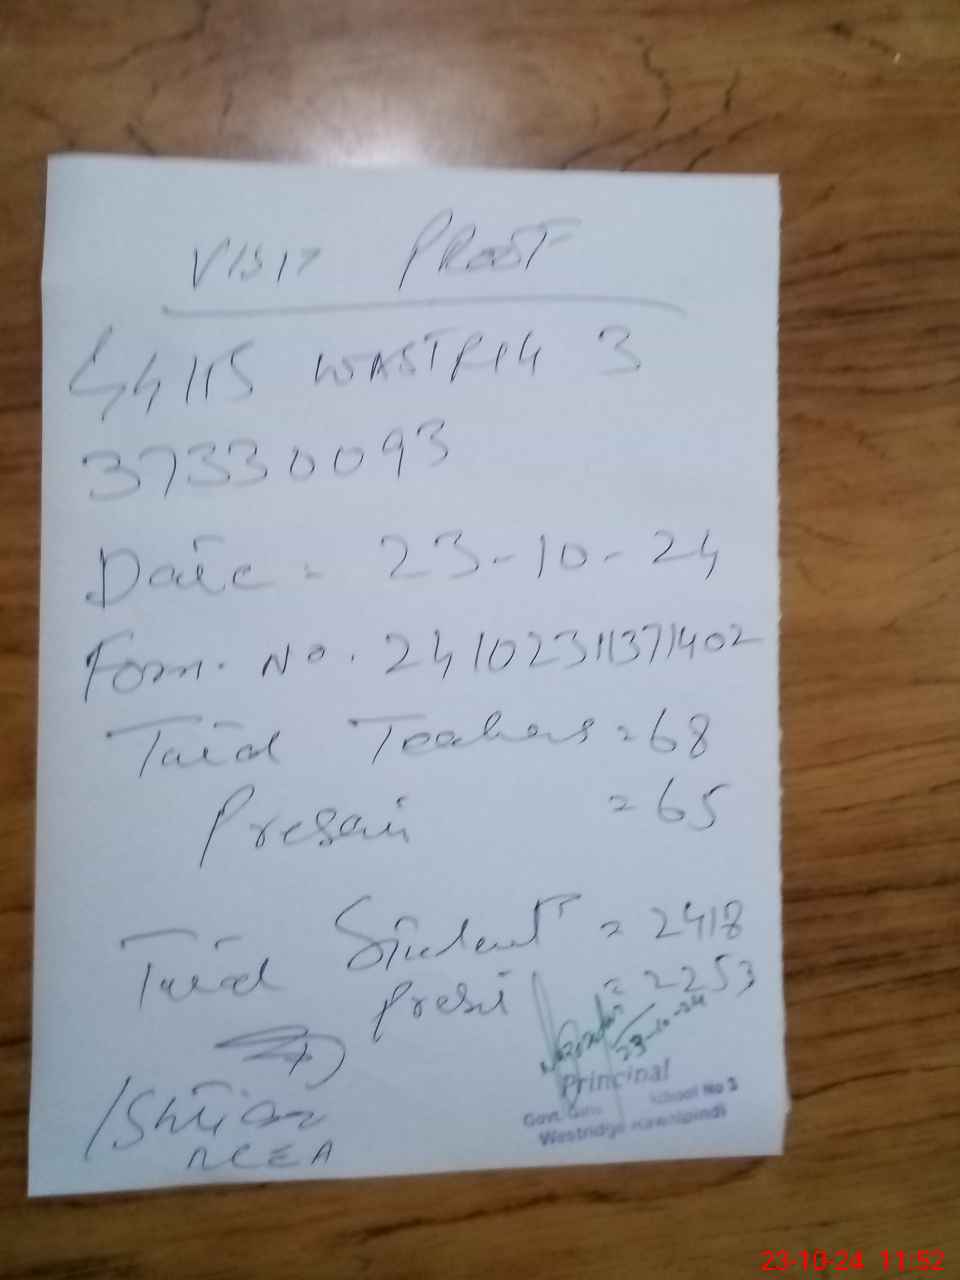 VISIT PROOF
44115 WASTRIG 3
37330093
Date = 23-10-24
Form. No. 24102311371402
Total Teachers = 68
Present = 65
Total Student = 2418
Present = 2253
23-10-24
Principal
Govt. Girls School No 3
Westridge Rawalpindi
NCEA
23-10-24 11:52